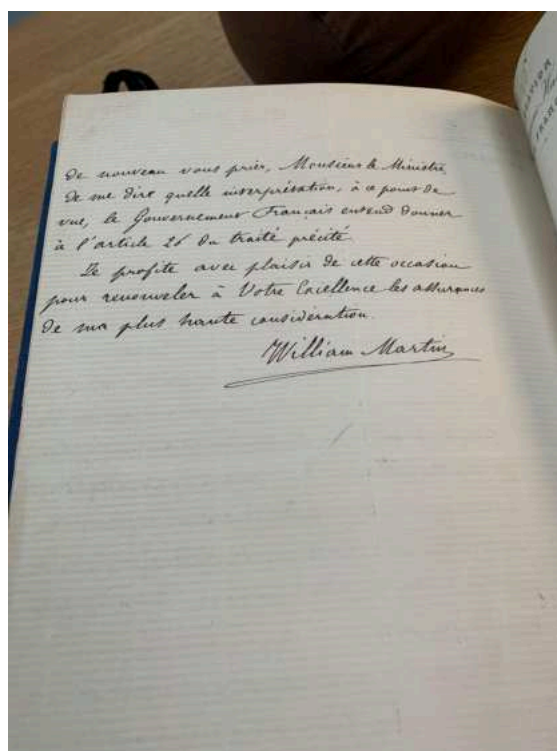 de nouveau vous prier, Monsieur le Ministre,
de me dire quelle interprétation, à ce point de
vue, le Gouvernement Français entend donner
à l'article 26 du traité précité.
Je profite avec plaisir de cette occasion
pour renouveler à Votre Excellence les assurances
de ma plus haute considération.
William Martin